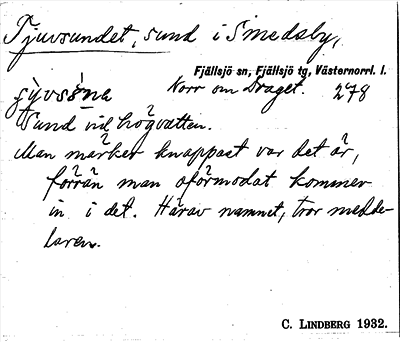 Tjuvsundet, sund i Smedsby,
Fjällsjö sn, Fjällsjö tg, Västernorrl. l.
Norr om Draget. 278
Sund vid högvatten.
Man märker knappast var det är,
förrän man oförmodat kommer
in i det. Härav namnet, tror medde-
laren.
C. LINDBERG 1932.